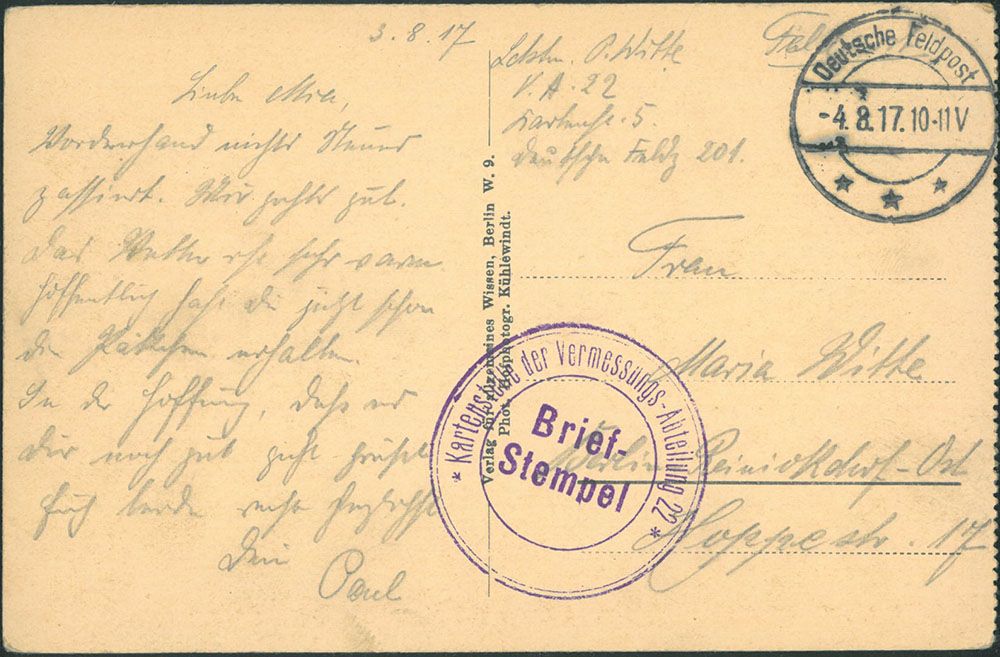 3. 8. 17
Liebe Mia,
Vorderhand nichts Neues
passiert. Mir gehts gut.
Das Wetter ist sehr warm
hoffentlich hast Du jetzt schon
die Päckchen erhalten.
In der Hoffnung, dass es
Dir noch gut geht grüßt
Euch beide recht herzlichst
Dein
Paul
P. Witte
V. A. 22
Kartenst. 5.
Deutsche Feldp 201.
Deutsche Feldpost
-4.8.17. 10-11V
Frau
Maria Witte
Berlin Reinickdorf-Ost
Hoppestr. 17
Verlag für Allgemeines Wissen, Berlin W. 9.
Phot. Hofphotogr. Kühlewindt.
* Kartenstelle der Vermessungs-Abteilung 22 *
Brief-
Stempel